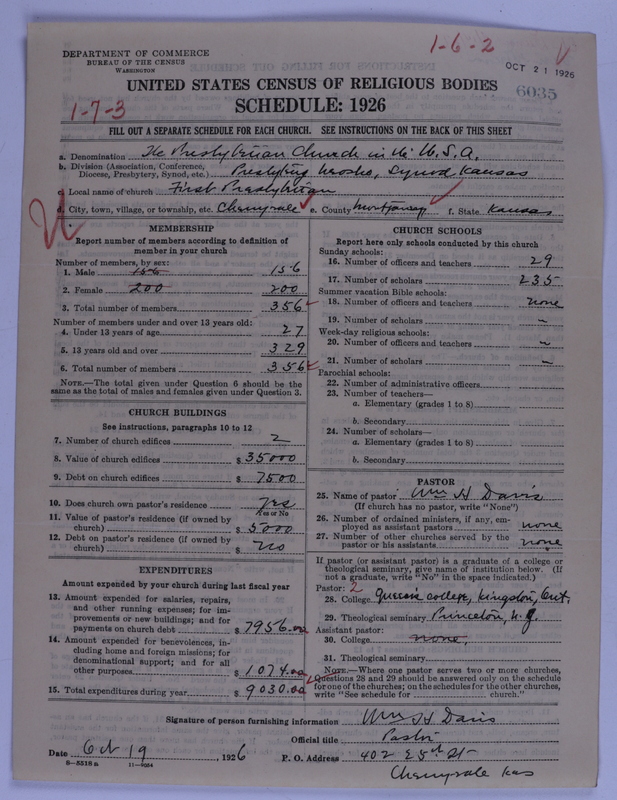 1-6-2
DEPARTMENT OF COMMERCE
BUREAU OF THE CENSUS
WASHINGTON
OCT 21 1926
6035
UNITED STATES CENSUS OF RELIGIOUS BODIES
1-7-3
SCHEDULE: 1926
FILL OUT A SEPARATE SCHEDULE FOR EACH CHURCH. SEE INSTRUCTIONS ON THE BACK OF THIS SHEET
a. Denomination The Presbyterian Church in the U.S.A.
b. Division (Association, Conference, Diocese, Presbytery, Synod, etc.) Presbytery Neosho, Synod Kansas
c. Local name of church First Presbyterian
d. City, town, village, or township, etc. Cherryvale e. County Montgomery f. State Kansas
MEMBERSHIP
Report number of members according to definition of
member in your church
Number of members, by sex:
1. Male 156 156
2. Female 200 200
3. Total number of members 356
Number of members under and over 13 years old:
4. Under 13 years of age 27
5. 13 years old and over 329
6. Total number of members 356
NOTE.—The total given under Question 6 should be the
same as the total of males and females given under Question 3.
CHURCH BUILDINGS
See instructions, paragraphs 10 to 12
7. Number of church edifices 2
8. Value of church edifices $ 35000
9. Debt on church edifices $ 7500
10. Does church own pastor's residence Yes
Yes or No
11. Value of pastor's residence (if owned by
church) $ 5000
12. Debt on pastor's residence (if owned by
church) $ No
EXPENDITURES
Amount expended by your church during last fiscal year
13. Amount expended for salaries, repairs,
and other running expenses; for im-
provements or new buildings; and for
payments on church debt $ 7956.00
14. Amount expended for benevolences, in-
cluding home and foreign missions; for
denominational support; and for all
other purposes $ 1074.00
15. Total expenditures during year $ 9030.00
CHURCH SCHOOLS
Report here only schools conducted by this church
Sunday schools:
16. Number of officers and teachers 29
17. Number of scholars 235
Summer vacation Bible schools:
18. Number of officers and teachers none
19. Number of scholars –
Week-day religious schools:
20. Number of officers and teachers –
21. Number of scholars –
Parochial schools:
22. Number of administrative officers
23. Number of teachers—
a. Elementary (grades 1 to 8)
b. Secondary
24. Number of scholars—
a. Elementary (grades 1 to 8)
b. Secondary
PASTOR
25. Name of pastor Wm H Davis
(If church has no pastor, write "None")
26. Number of ordained ministers, if any, em-
ployed as assistant pastors none
27. Number of other churches served by the
pastor or his assistants none
If pastor (or assistant pastor) is a graduate of a college or
theological seminary, give name of institution below. (If
not a graduate, write "No" in the space indicated.)
Pastor: 2
28. College Queens College, Kingston, Ont.
29. Theological seminary Princeton, N.J.
Assistant pastor:
30. College none
31. Theological seminary
NOTE.—Where one pastor serves two or more churches,
Questions 28 and 29 should be answered only on the schedule
for one of the churches; on the schedules for the other churches,
write "See schedule for church."
Signature of person furnishing information Wm H Davis
Official title Pastor
Date Oct 19, 1926 P. O. Address 402 E 5th St
8-5518a 11-9564
Cherryvale Kas